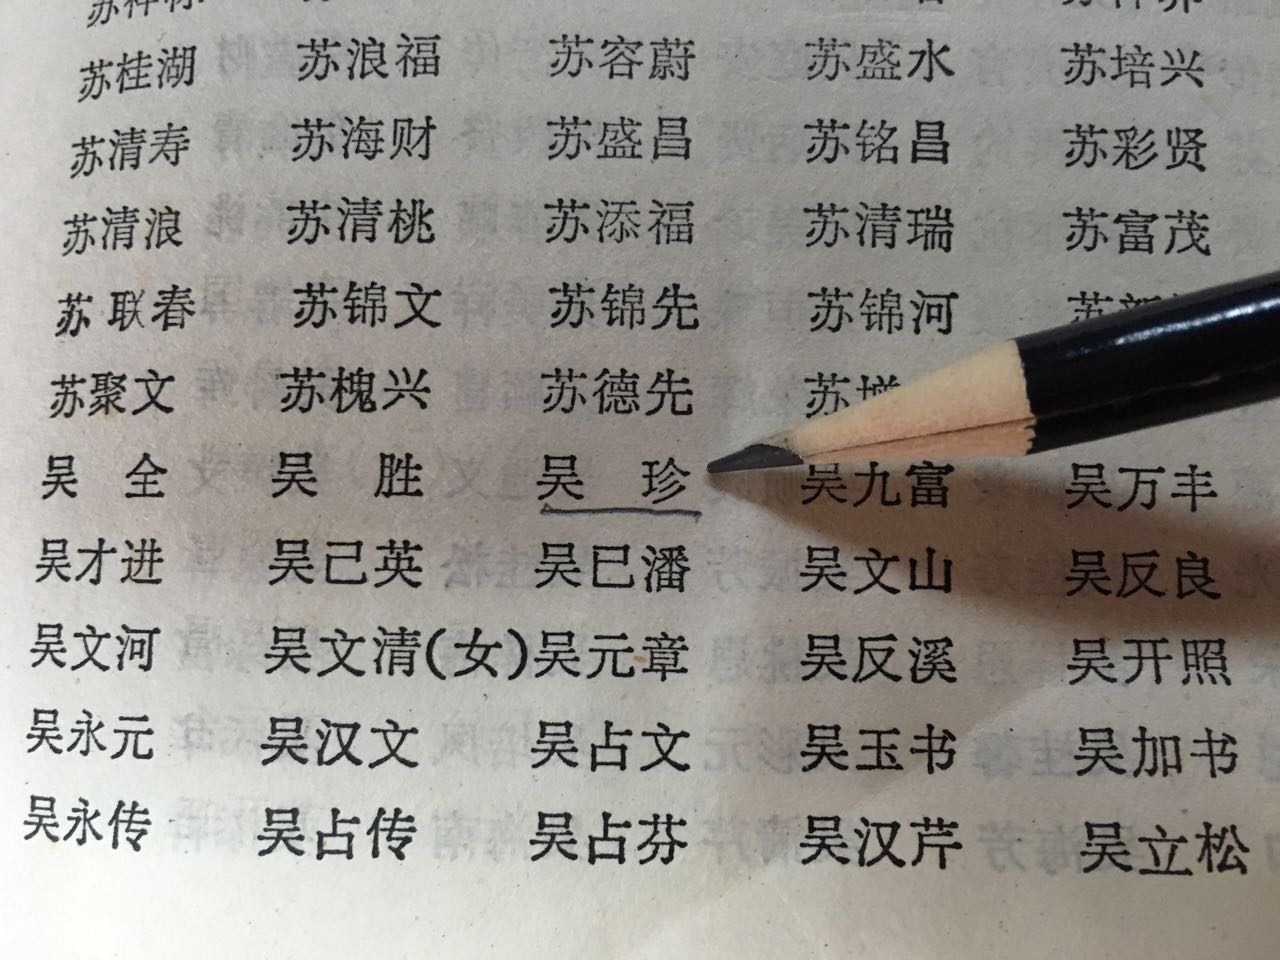 苏桂湖 苏浪福 苏容蔚 苏盛水 苏培兴
苏清寿 苏海财 苏盛昌 苏铭昌 苏彩贤
苏清浪 苏清桃 苏添福 苏清瑞 苏富茂
苏联春 苏锦文 苏锦先 苏锦河 苏
苏聚文 苏槐兴 苏德先 苏增
吴全 吴胜 吴珍 吴九富 吴万丰
吴才进 吴己英 吴巳潘 吴文山 吴反良
吴文河 吴文清(女) 吴元章 吴反溪 吴开照
吴永元 吴汉文 吴占文 吴玉书 吴加书
吴永传 吴占传 吴占芬 吴汉芹 吴立松